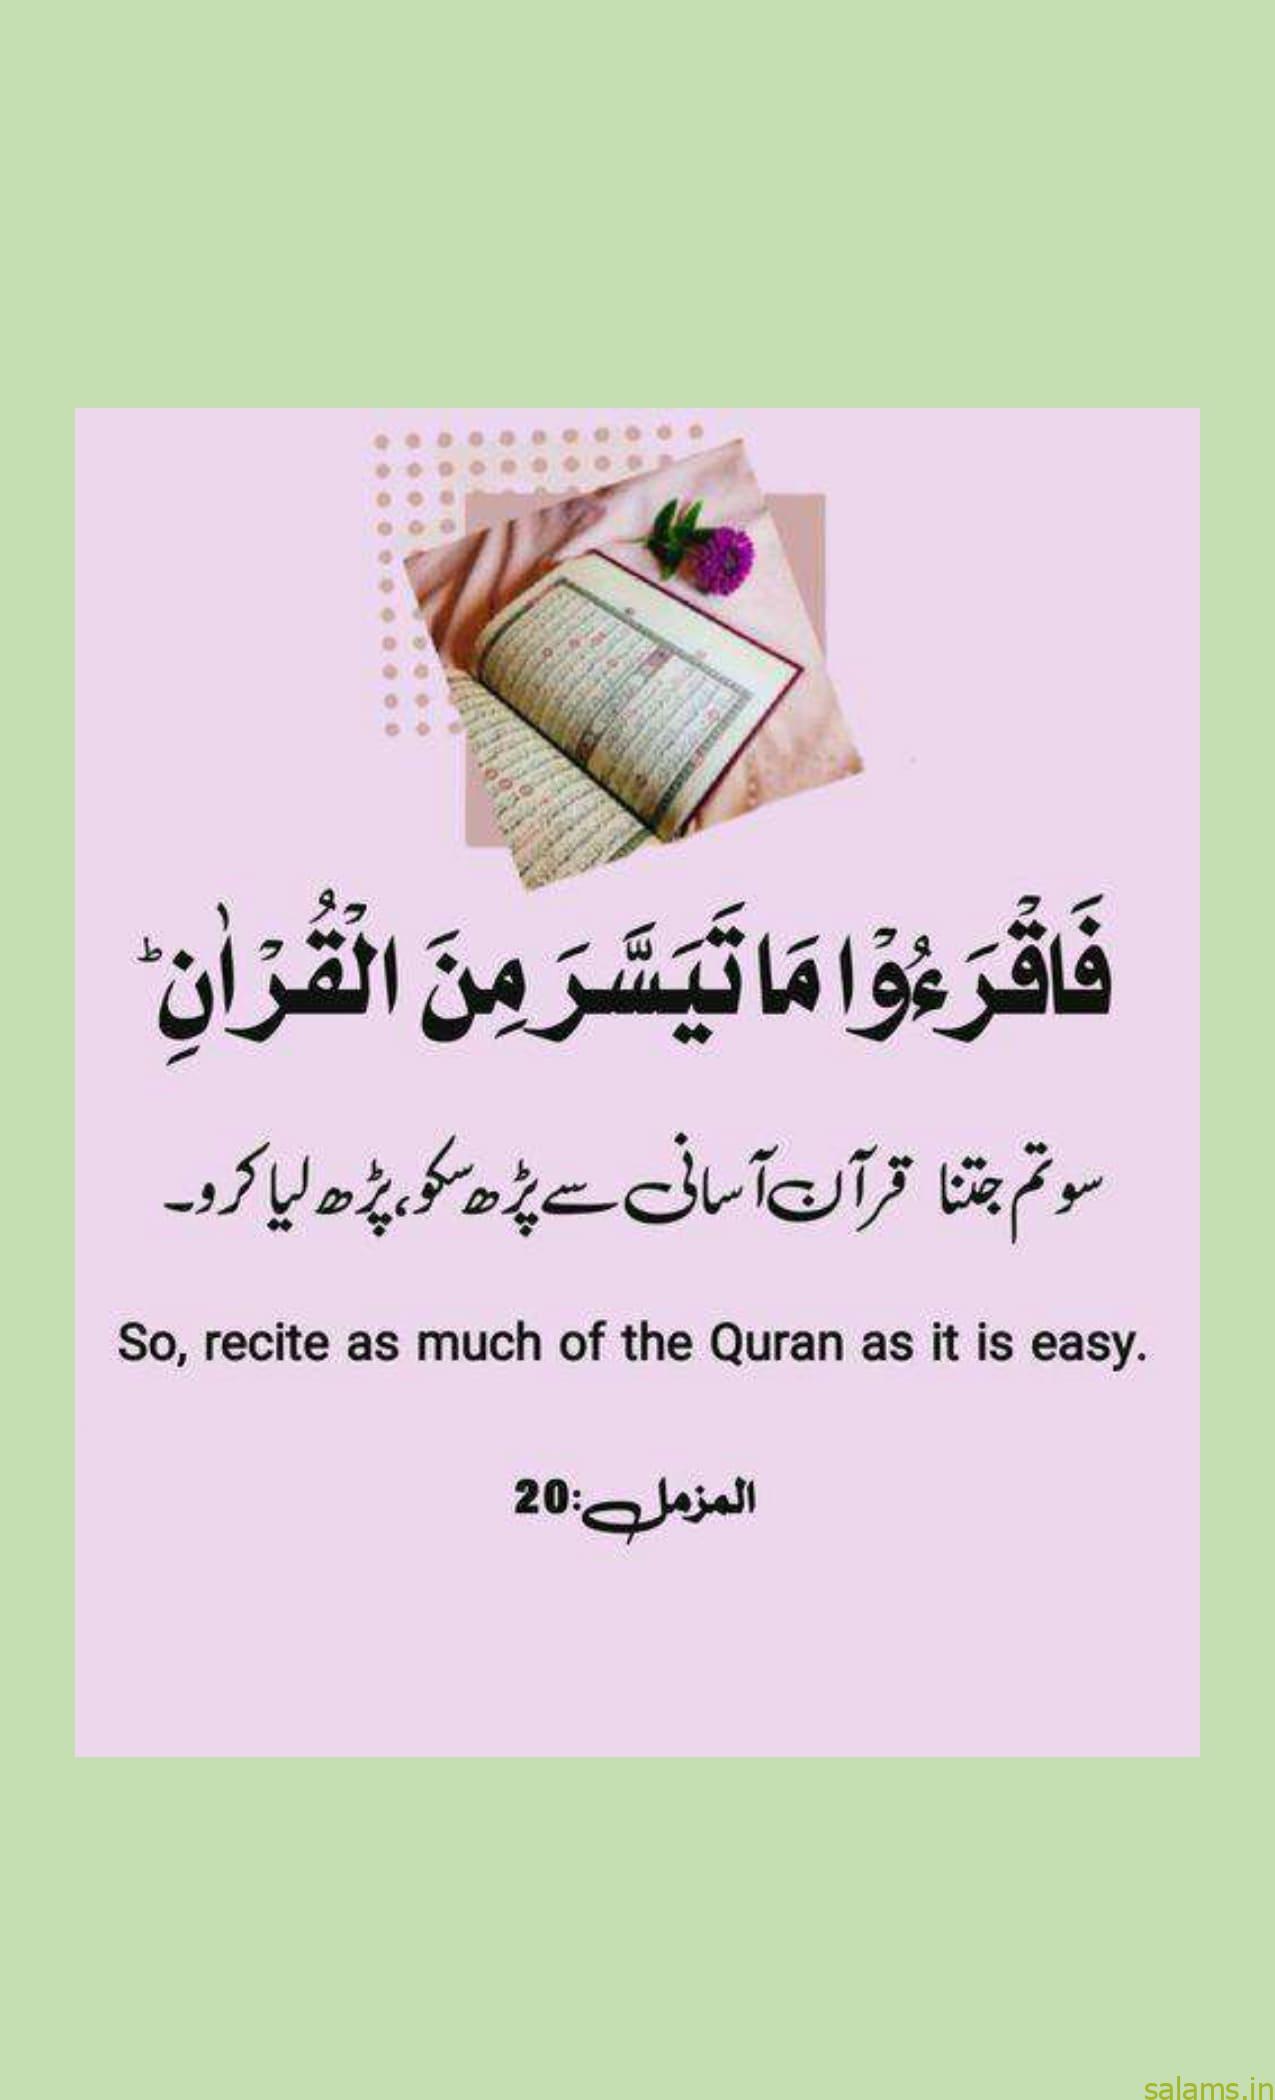 فَاقْرَءُوْا مَا تَيَسَّرَ مِنَ الْقُرْاٰنِ ؕ
سو تم جتنا قرآن آسانی سے پڑھ سکو، پڑھ لیا کرو۔
So, recite as much of the Quran as it is easy.
المزمل:20
salams.in